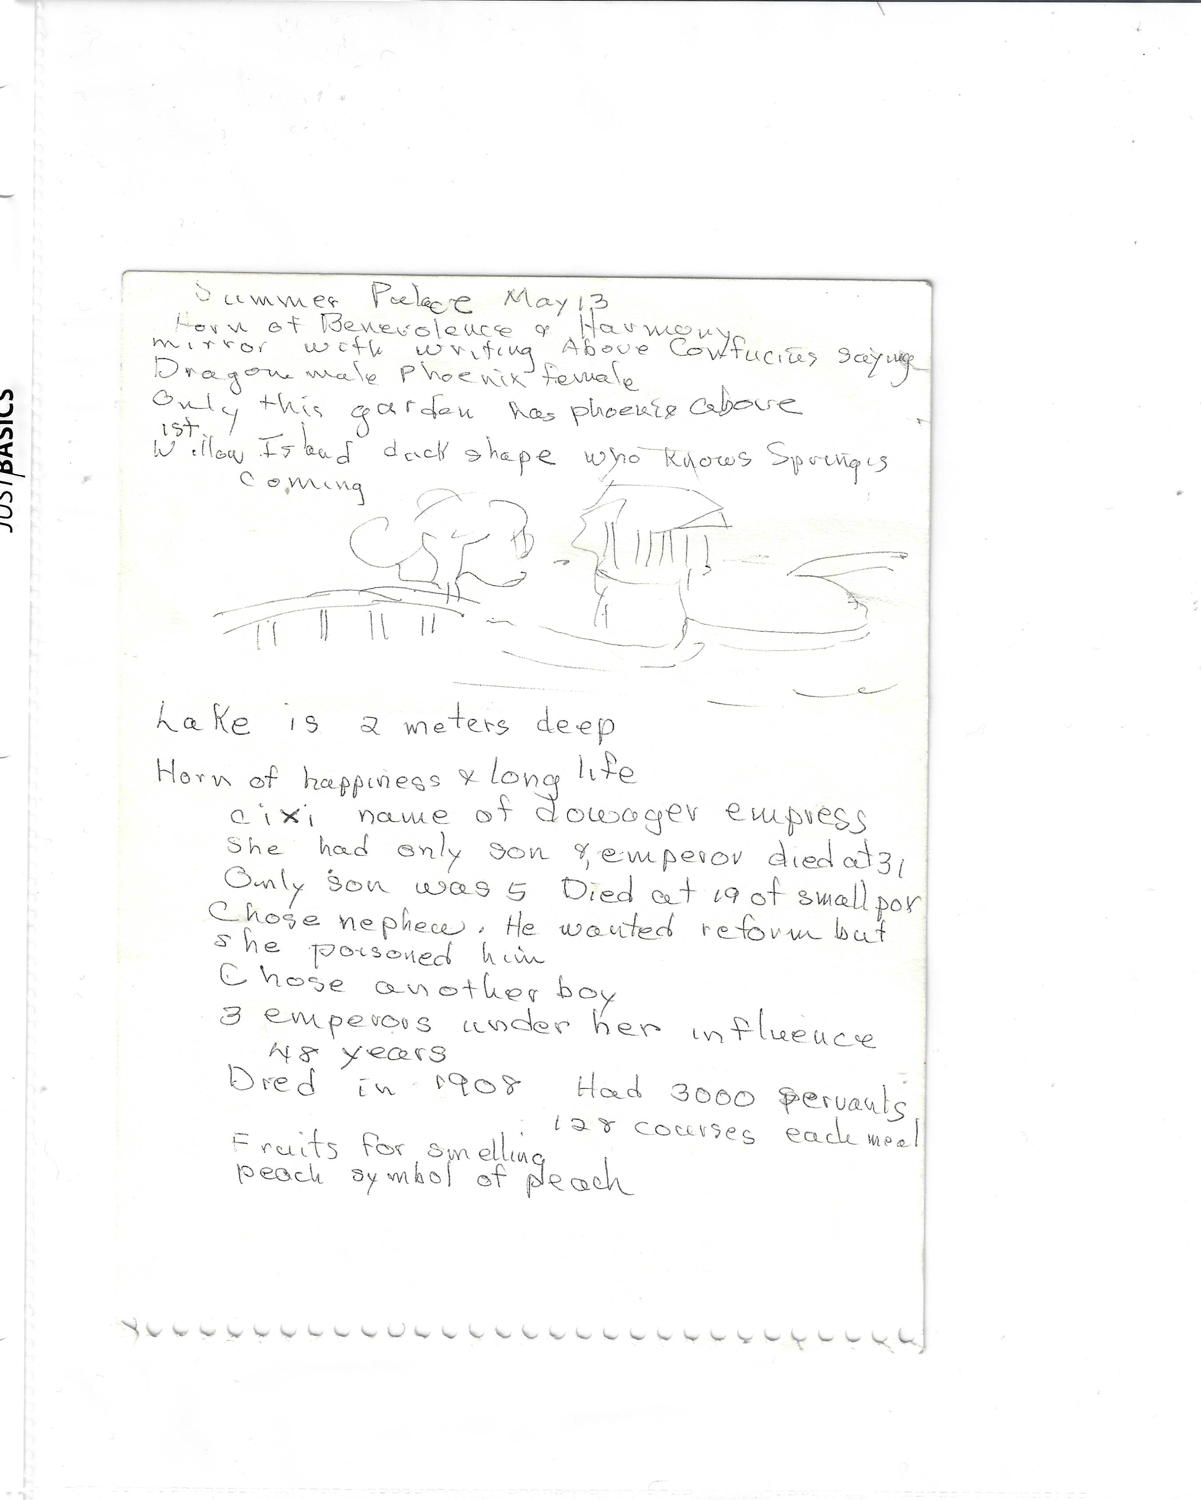 Summer Palace May 13
Horn of Benevolence & Harmony
mirror with writing Above Confucius saying
Dragon male Phoenix female
Only this garden has phoenix above
1st.
Willow Island duck shape who knows Springis
Coming
Lake is 2 meters deep
Horn of happiness & long life
cixi name of dowager empress
She had only son & emperor died at 31
Only son was 5 Died at 19 of small pox
Chose nephew. He wanted reform but
she poisoned him
Chose another boy
3 emperors under her influence
48 years
Died in 1908 Had 3000 servants
128 courses each meal
Fruits for smelling
peach symbol of peach
JUST BASICS